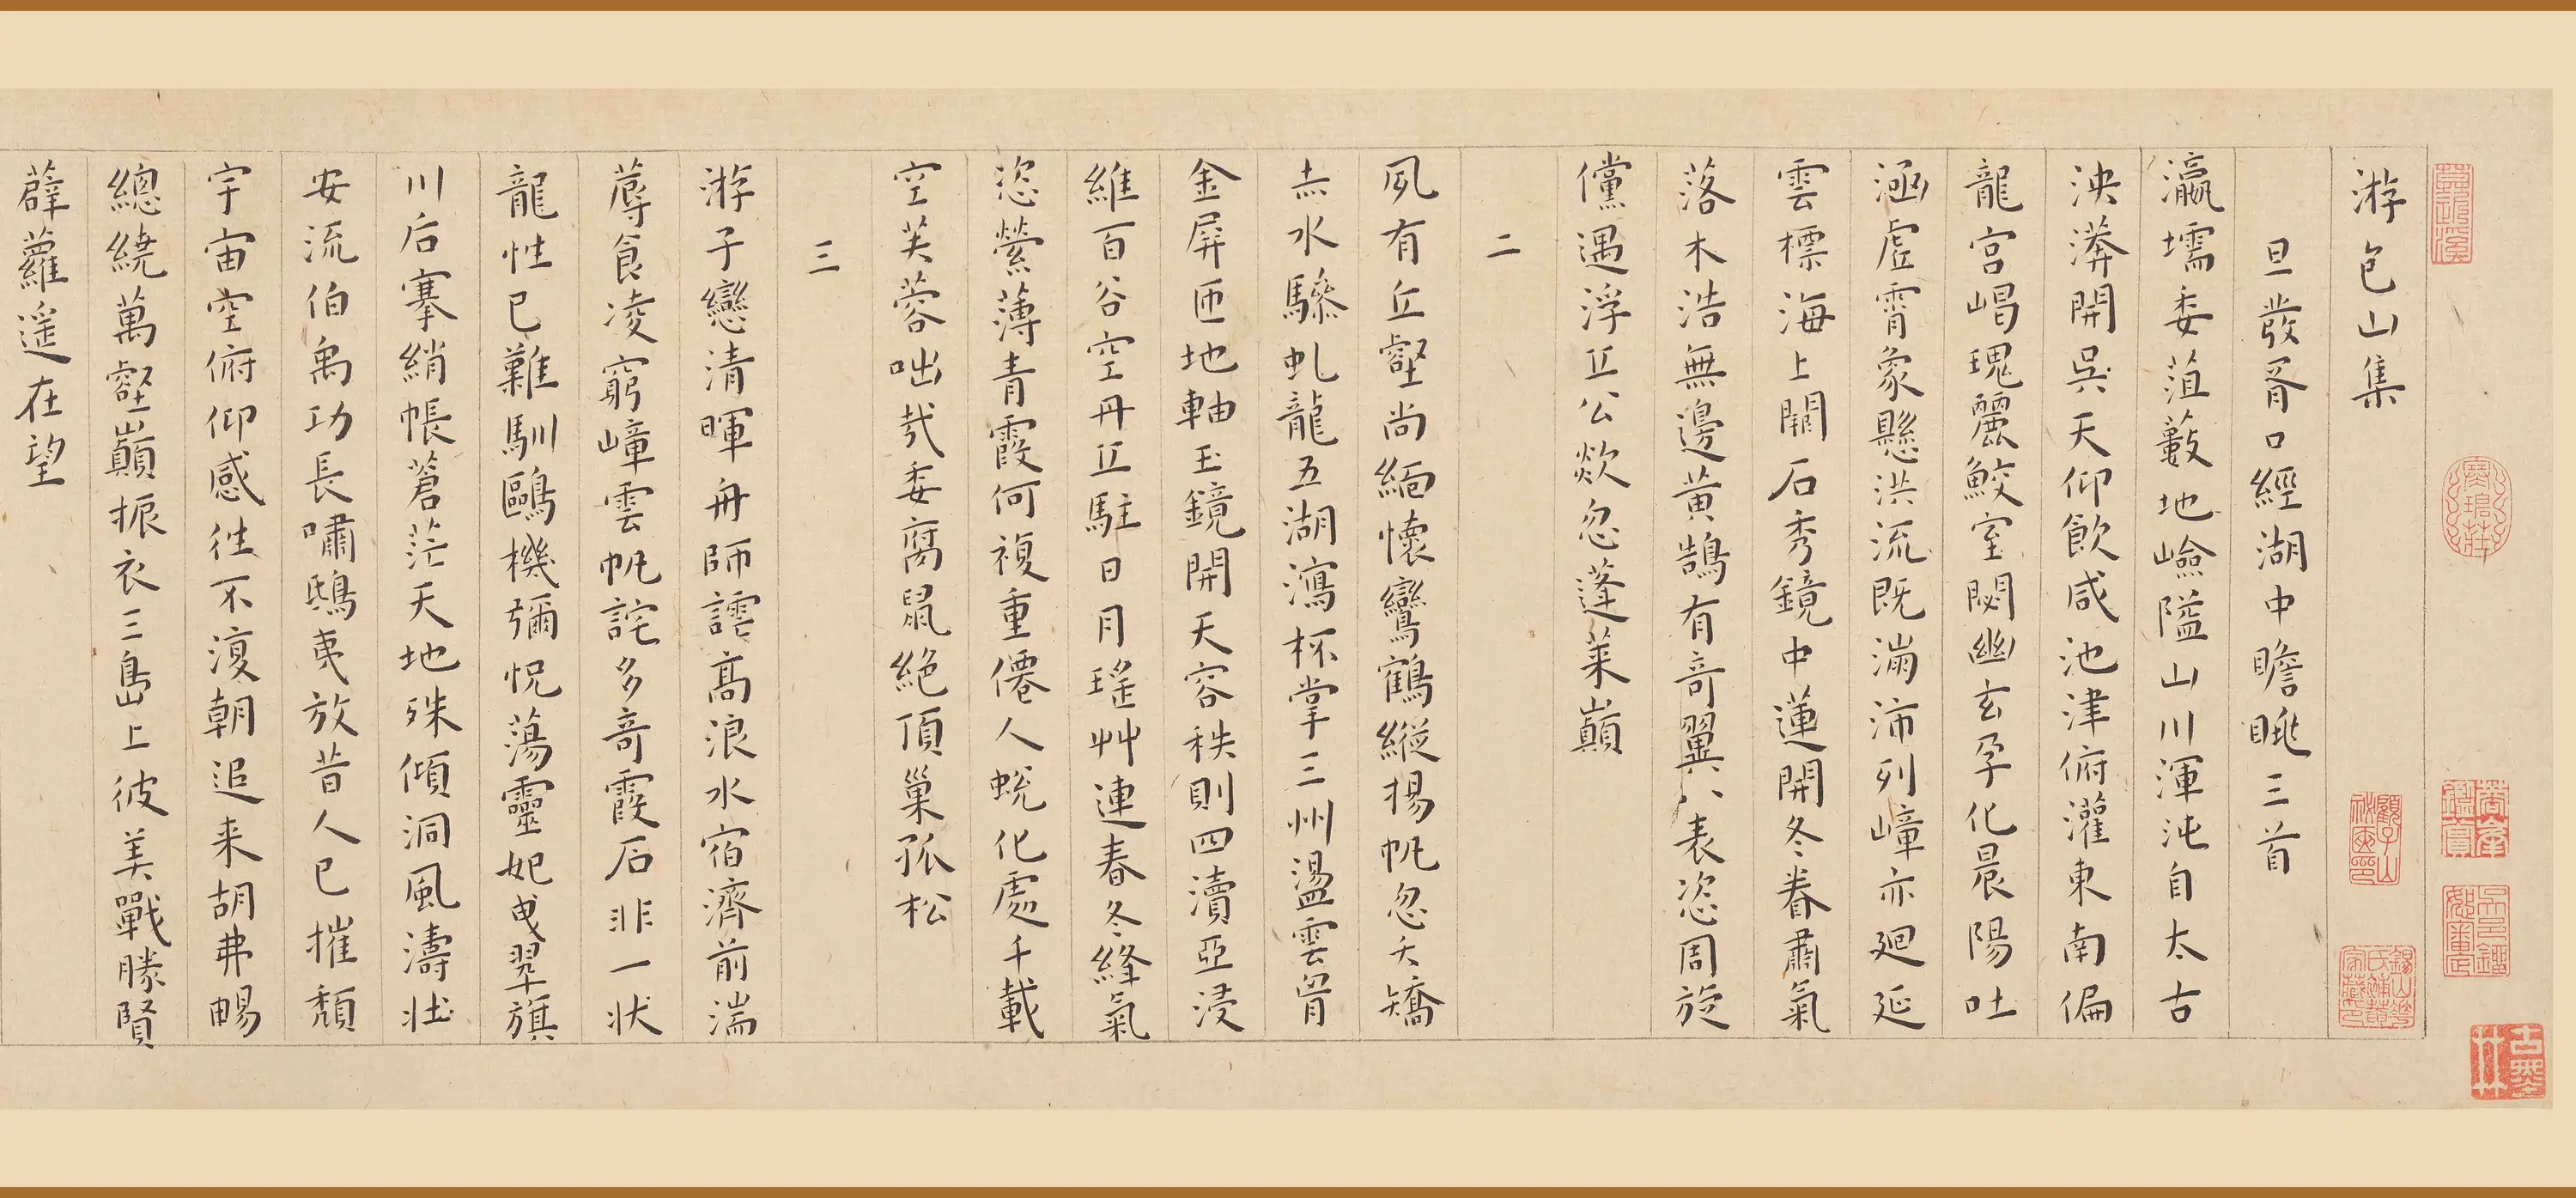 游包山集
旦發胥口經湖中瞻眺三首
瀛壖委菹藪地嶮隘山川渾沌自太古
泱漭開吳天仰飲咸池津俯灌東南偏
龍宮嵑瑰麗鮫室閟幽玄孕化晨陽吐
涵虛霄象懸洪流既滿沛列嶂亦廻延
雲標海上闢石秀鏡中蓮開冬眷肅氣
落木浩無邊黃鵠有奇翼八表恣周旋
儻遇浮丘公欻忽蓬萊巔
二
夙有丘壑尚緬懷鸞鶴縱揚帆忽夭矯
赤水驂虬龍五湖瀉杯掌三州盪雲胷
金屏匝地軸玉鏡開天容秩則四瀆亞浸
維百谷空丹丘駐日月瑤艸連春冬絳氣
恣縈薄青霞何複重僊人蛻化處千載
空芙蓉咄哉委腐鼠絕頂巢孤松
三
游子戀清暉舟師謣高浪水宿濟前湍
蓐食凌窮嶂雲帆詫多奇霞石非一狀
龍性已難馴鷗機彌怳蕩靈妃曳翠旗
川后搴綃帳蒼茫天地殊傾洞風濤壯
安流伯禹功長嘯鴟夷放昔人已摧頹
宇宙空俯仰感往不復朝追来胡弗暢
總繞萬壑巔振衣三島上彼美戰勝賢
薜蘿遥在望